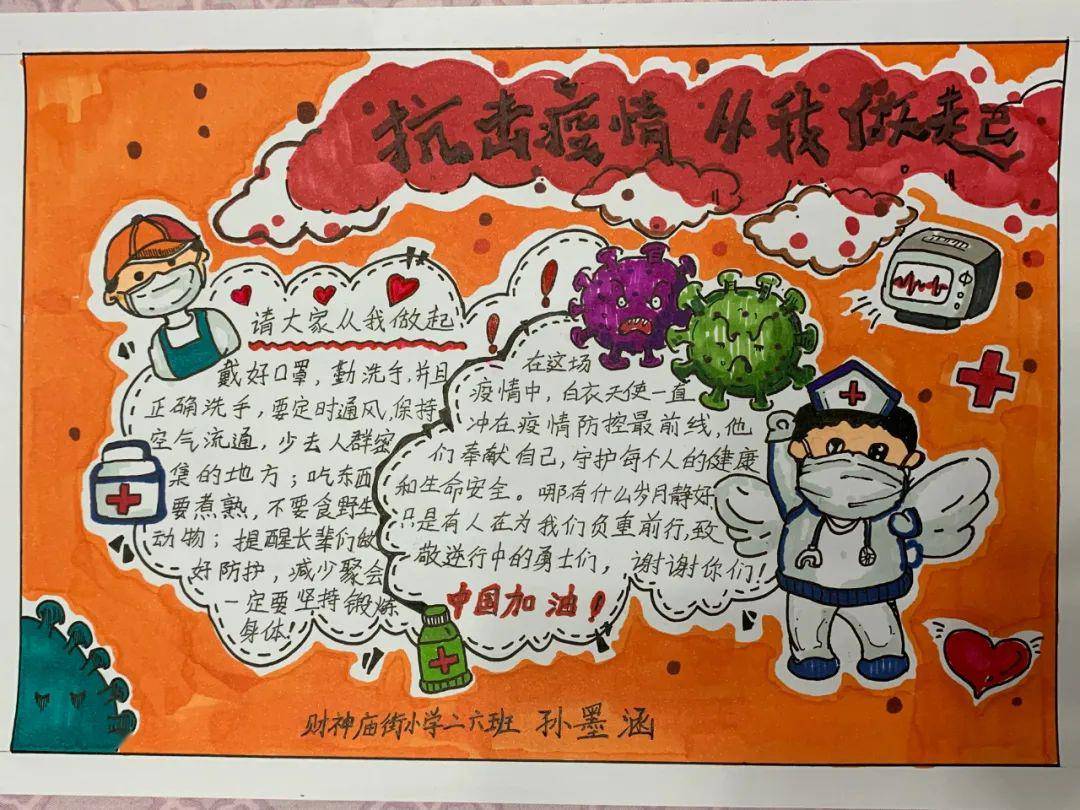 抗击疫情 从我做起
请大家从我做起
戴好口罩，勤洗手，并且
正确洗手，要定时通风，保持
空气流通，少去人群密
集的地方；吃东西
要煮熟，不要食野生
动物；提醒长辈们做
好防护，减少聚会
一定要坚持锻炼
身体！
在这场
疫情中，白衣天使一直
冲在疫情防控最前线，他
们奉献自己，守护每个人的健康
和生命安全。哪有什么岁月静好
只是有人在为我们负重前行，致
敬逆行中的勇士们，谢谢你们！
中国加油！
财神庙街小学二六班 孙墨涵